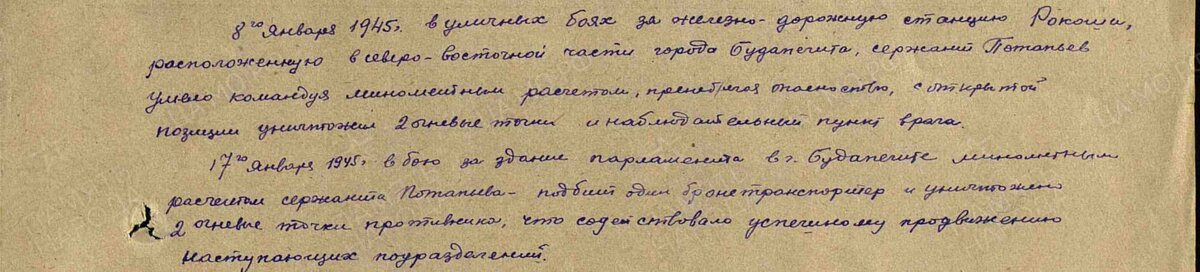 8го Января 1945г. в уличных боях за железно-дорожную станцию Рокоши,
расположенную в северо-восточной части города Будапешта, сержант Потапьев
умело командуя минометным расчетом, пренебрегая опасностью, с открытой
позиции уничтожил 2 огневые точки и наблюдательный пункт врага.
17го Января 1945г. в бою за здание парламента в г. Будапеште минометным
расчетом сержанта Потапьева - подбит один бронетранспортер и уничтожено
2 огневые точки противника, что содействовало успешному продвижению
наступающих подразделений.